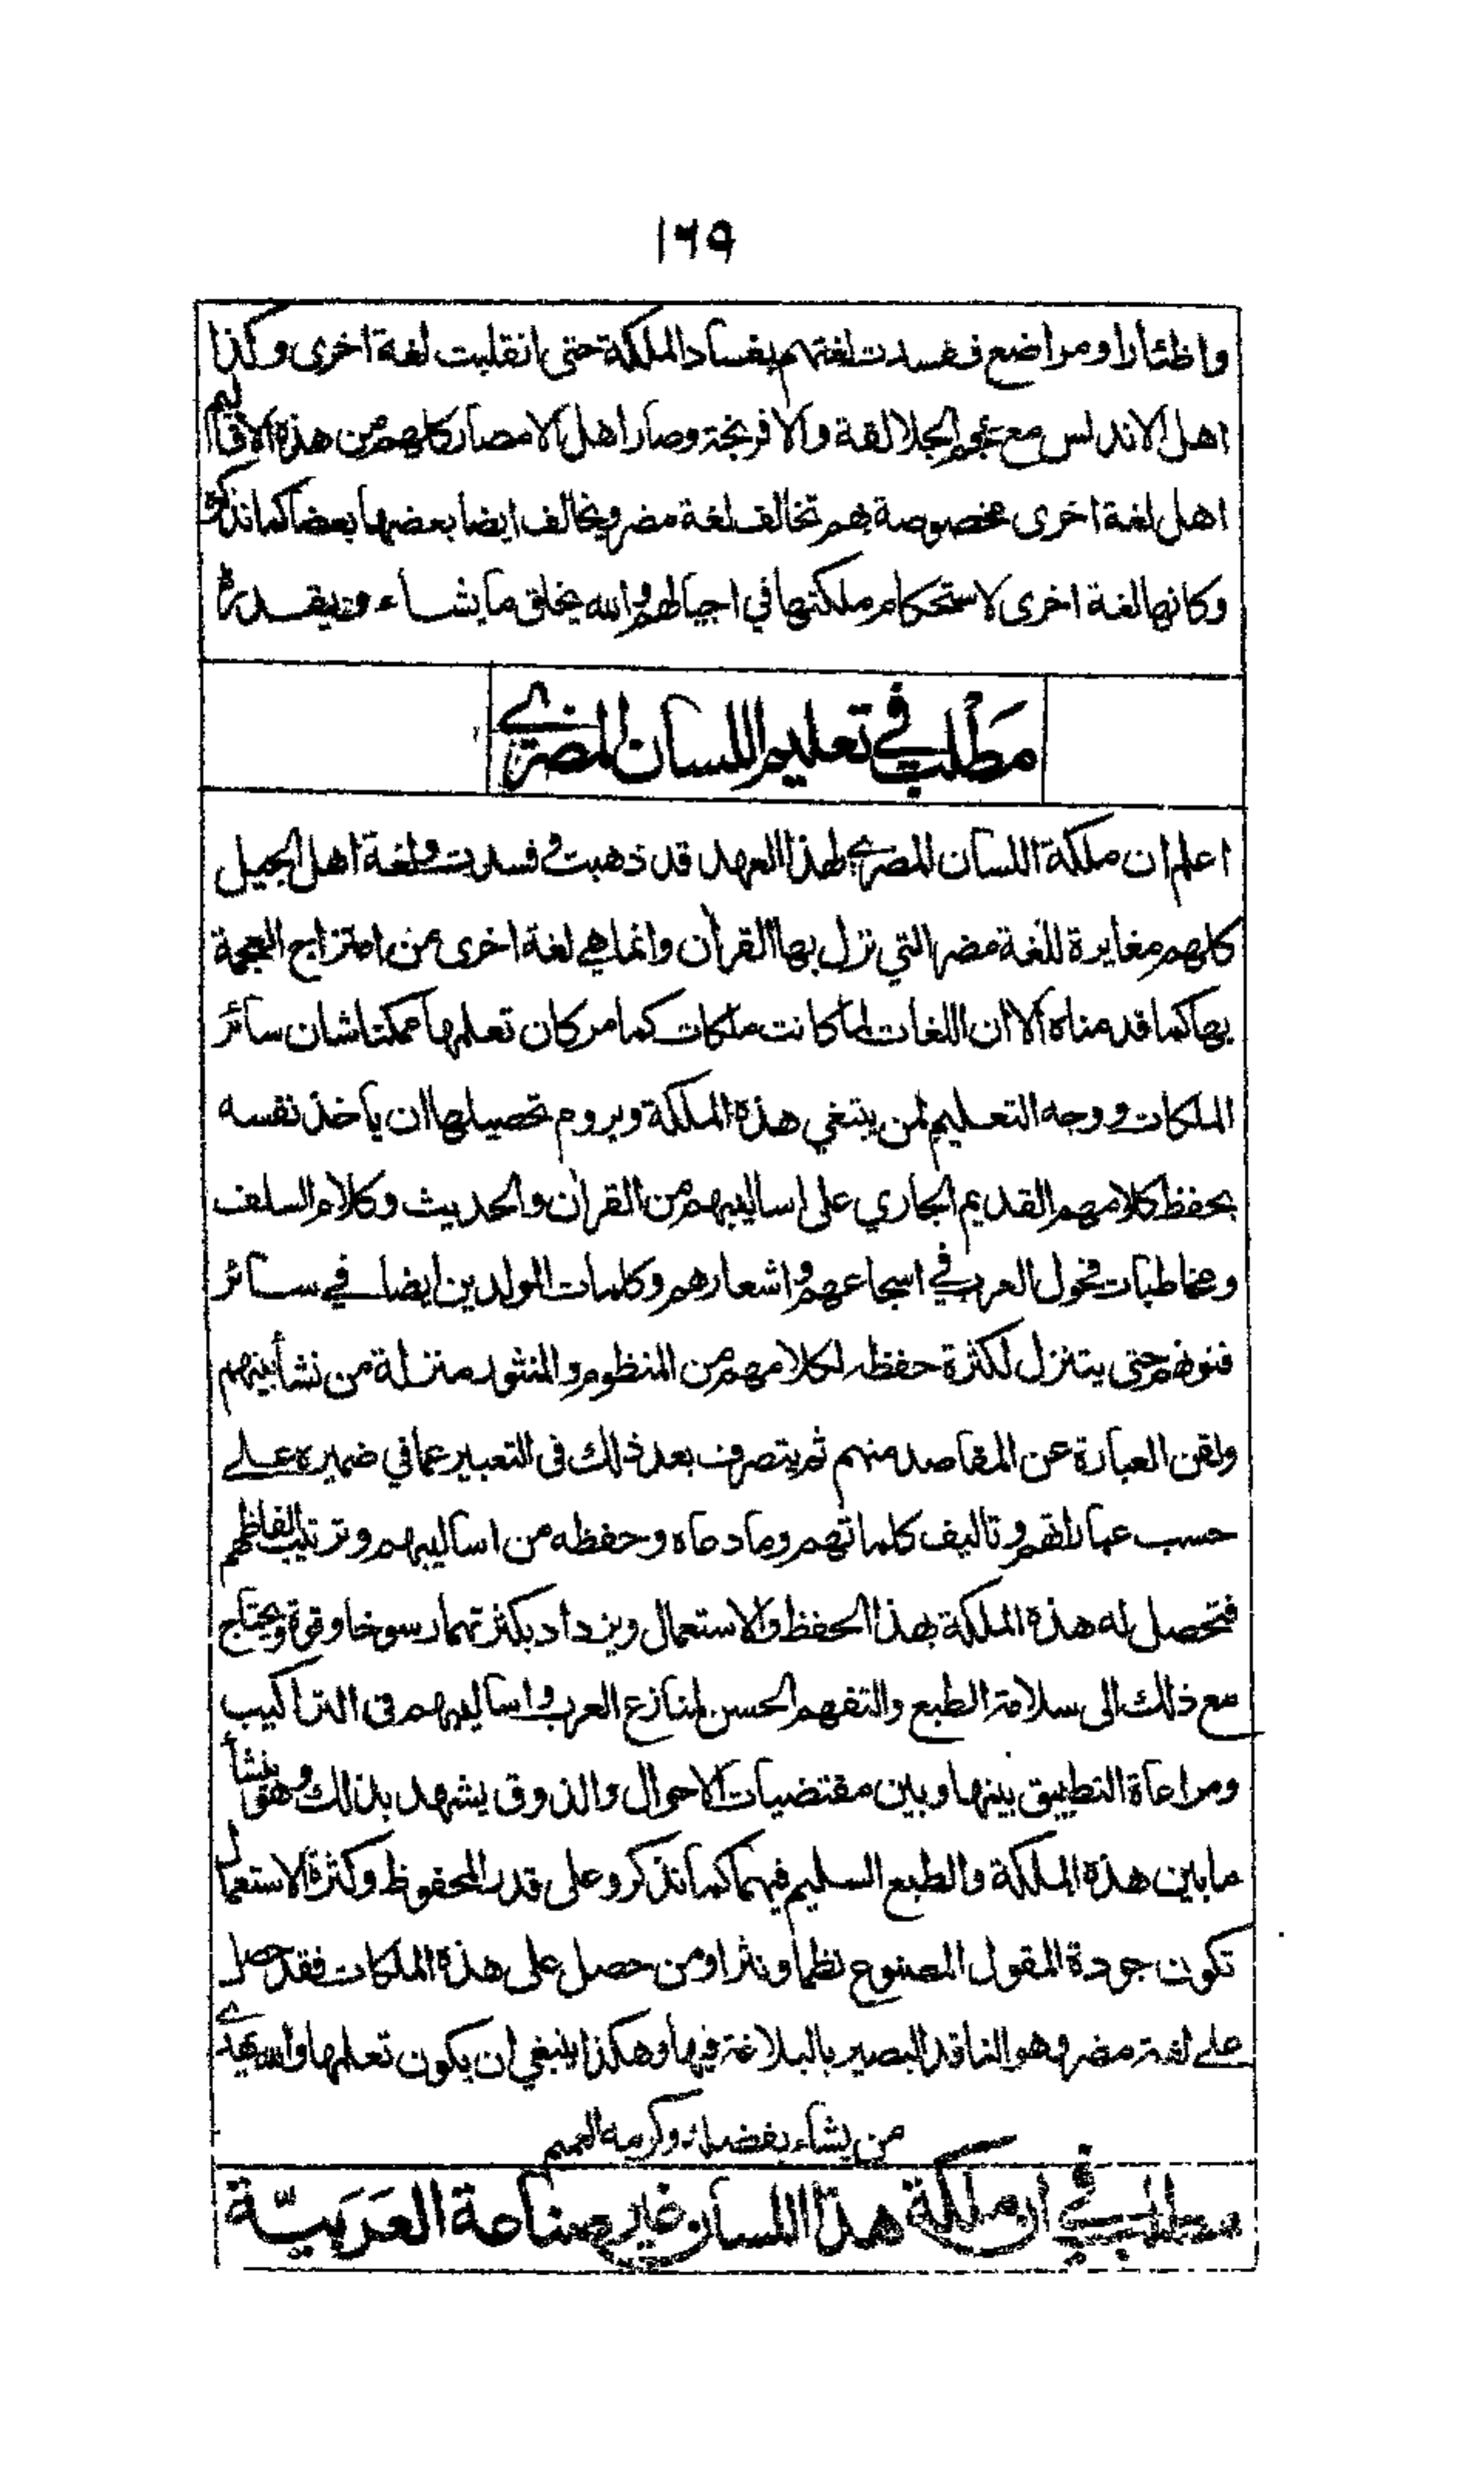 ١٦٩
واظئارا ومراضع ففسدت لغتهم بفساد الملكة حتى انقلبت لغة اخرى وكذا
اهل الاندلس مع عجم الجلالقة والافرنجة وصار اهل الامصار كلهم من هذه الاقاليم
اهل لغة اخرى مخصوصة بهم تخالف لغة مضر ويخالف ايضا بعضها بعضا كما نذكره
وكانها لغة اخرى لاستحكام ملكتها في اجيالهم والله يخلق ما يشاء ويقدر
مطلب في تعليم اللسان المضري
اعلم ان ملكة اللسان المضري لهذا العهد قد ذهبت وفسدت ولغة اهل الجيل
كلهم مغايرة للغة مضر التي نزل بها القرآن وانما هي لغة اخرى من امتزاج العجمة
بها كما قدمناه الا ان اللغات لما كانت ملكات كما مر كان تعلمها ممكنا شان سائر
الملكات ووجه التعليم لمن يبتغي هذه الملكة ويروم تحصيلها ان ياخذ نفسه
بحفظ كلامهم القديم الجاري على اساليبهم من القرآن والحديث وكلام السلف
ومخاطبات فحول العرب في اسجاعهم واشعارهم وكلمات المولدين ايضا في سائر
فنونهم حتى يتنزل لكثرة حفظه لكلامهم من المنظوم والمنثور منزلة من نشأ بينهم
ولقن العبارة عن المقاصد منهم ثم يتصرف بعد ذلك فى التعبير عما في ضميره على
حسب عباراتهم وتاليف كلماتهم وما دعاه وحفظه من اساليبهم وترتيب الفاظهم
فتحصل له هذه الملكة بهذا الحفظ والاستعمال ويزداد بكثرتهما رسوخا وقوة ويحتاج
مع ذلك الى سلامة الطبع والتفهم الحسن لمنازع العرب واساليبهم فى التراكيب
ومراعاة التطبيق بينها وبين مقتضيات الاحوال والذوق يشهد بذلك وهو ينشأ
ما بين هذه الملكة والطبع السليم فيهما كما نذكر وعلى قدر المحفوظ وكثرة الاستعمال
تكون جودة المقول المصنوع نظما ونثرا ومن حصل على هذه الملكات فقد حصل
على لغة مضر وهو الناقد البصير بالبلاغة فيها وهكذا ينبغي ان يكون تعلمها والله يهدي
من يشاء بفضله وكرمه العميم
مطلب في ان ملكة هذا اللسان غير صناعة العربيّة